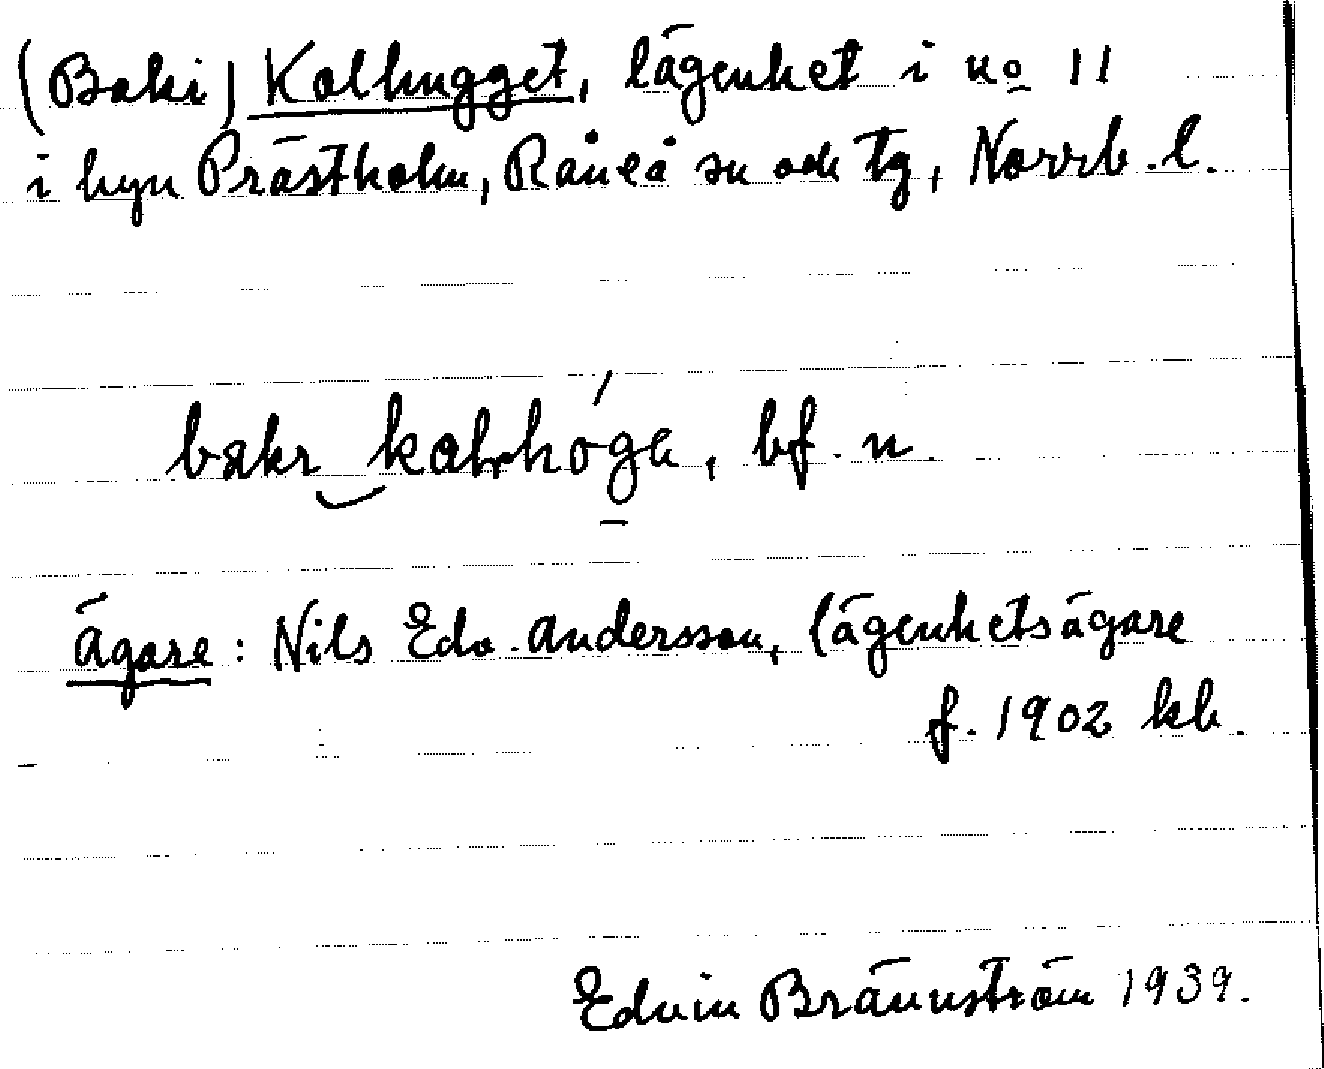 (Baki) Kolhugget, lägenhet i no 11
i byn Prästholm, Råneå sn och tg, Norrb. l.
bakı kalhóga, bf. n.
Ägare: Nils Edv. Andersson, lägenhetsägare
f. 1902 kb.
Edvin Brännström 1939.